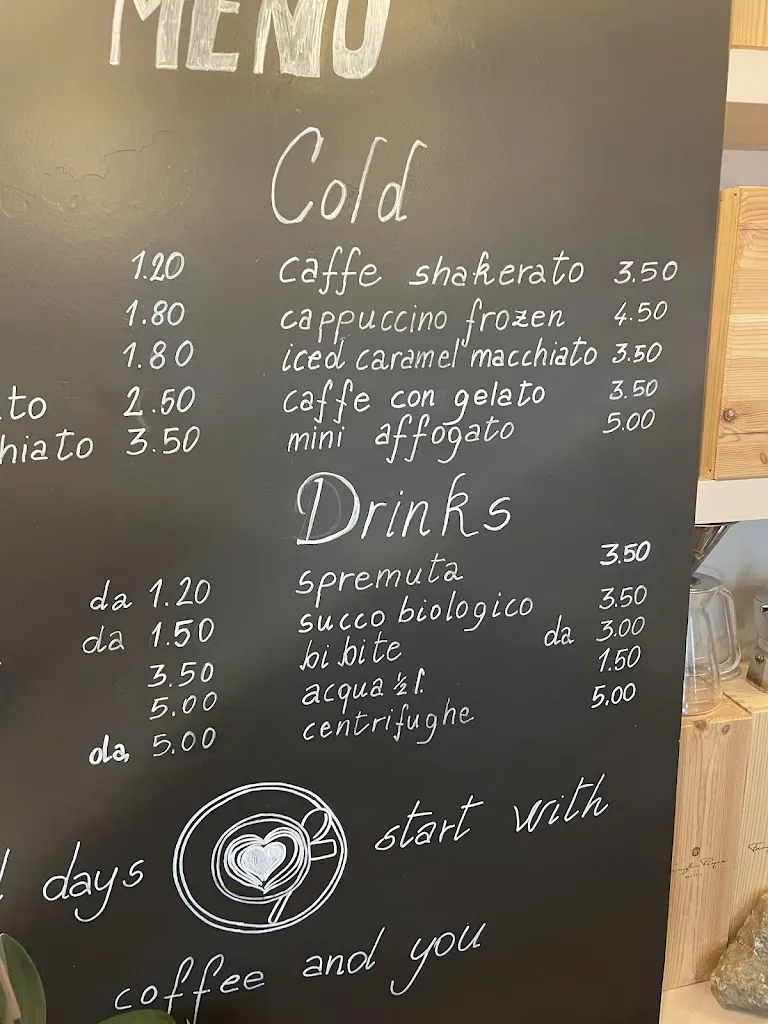 MENU
Cold
1.20 caffe shakerato 3.50
1.80 cappuccino frozen 4.50
1.80 iced caramel macchiato 3.50
to 2.50 caffe con gelato 3.50
hiato 3.50 mini affogato 5.00
Drinks
da 1.20 spremuta 3.50
da 1.50 succo biologico 3.50
3.50 bibite da 3.00
5.00 acqua ½ l. 1.50
da 5.00 centrifughe 5.00
days start with
coffee and you